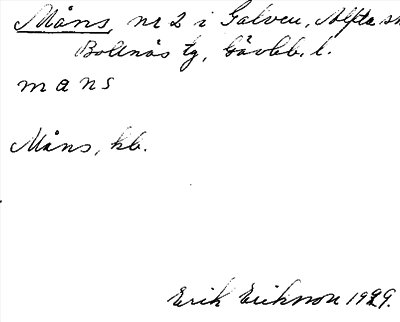 Måns, nr 2 i Galven, Alfta sn
Bollnäs tg, Gävleb. l.
mans
Måns, kb.
Erik Eriksson 1929.